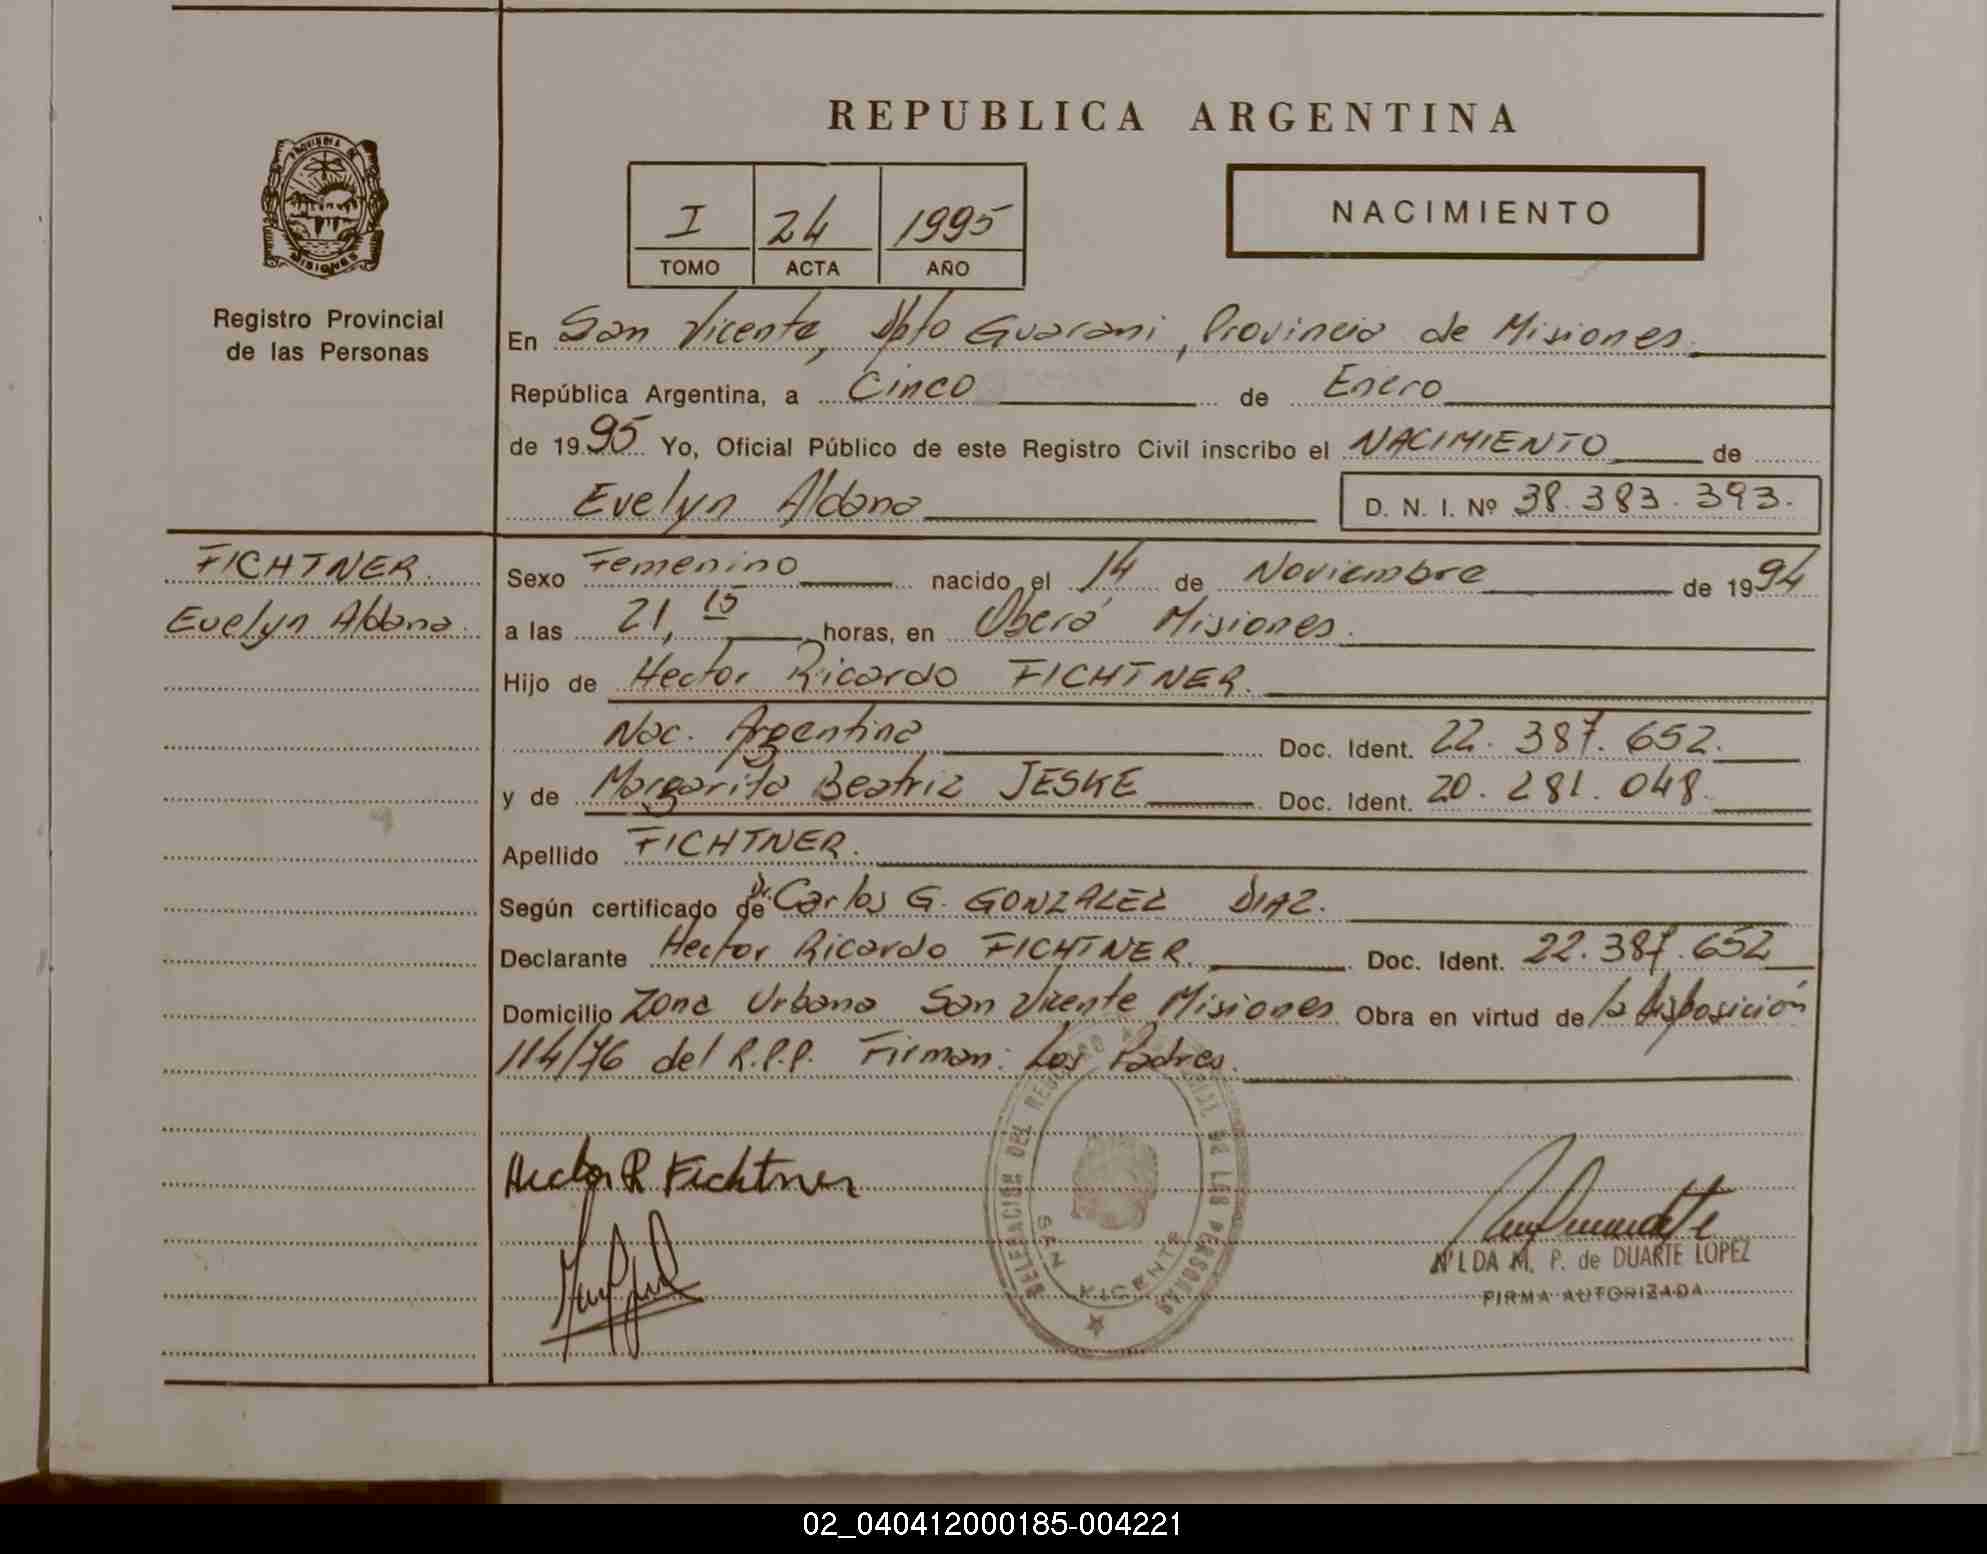 REPUBLICA ARGENTINA
PROVINCIA DE
MISIONES
Registro Provincial
de las Personas
I 24 1995
TOMO ACTA AÑO
NACIMIENTO
En San Vicente, Dpto Guarani, Provincia de Misiones.
República Argentina, a Cinco de Enero
de 1995 Yo, Oficial Público de este Registro Civil inscribo el NACIMIENTO de
Evelyn Aldana D. N. I. Nº 38.383.393.
FICHTNER.
Evelyn Aldana.
Sexo Femenino nacido el 14 de Noviembre de 1994
a las 21,15 horas, en Oberá Misiones.
Hijo de Hector Ricardo FICHTNER.
Nac. Argentina Doc. Ident. 22.387.652.
y de Margarita Beatriz JESKE Doc. Ident. 20.281.048.
Apellido FICHTNER.
Según certificado de Dr. Carlos G. GONZALEZ DIAZ.
Declarante Hector Ricardo FICHTNER. Doc. Ident. 22.387.652
Domicilio Zona Urbana San Vicente Misiones Obra en virtud de la disposición
114/76 del R.P.P. Firman: Los Padres.
Hector R Fichtner
DELEGACION DEL REGISTRO PROVINCIAL DE LAS PERSONAS
SAN VICENTE
NILDA M. P. de DUARTE LOPEZ
FIRMA AUTORIZADA
02_040412000185-004221